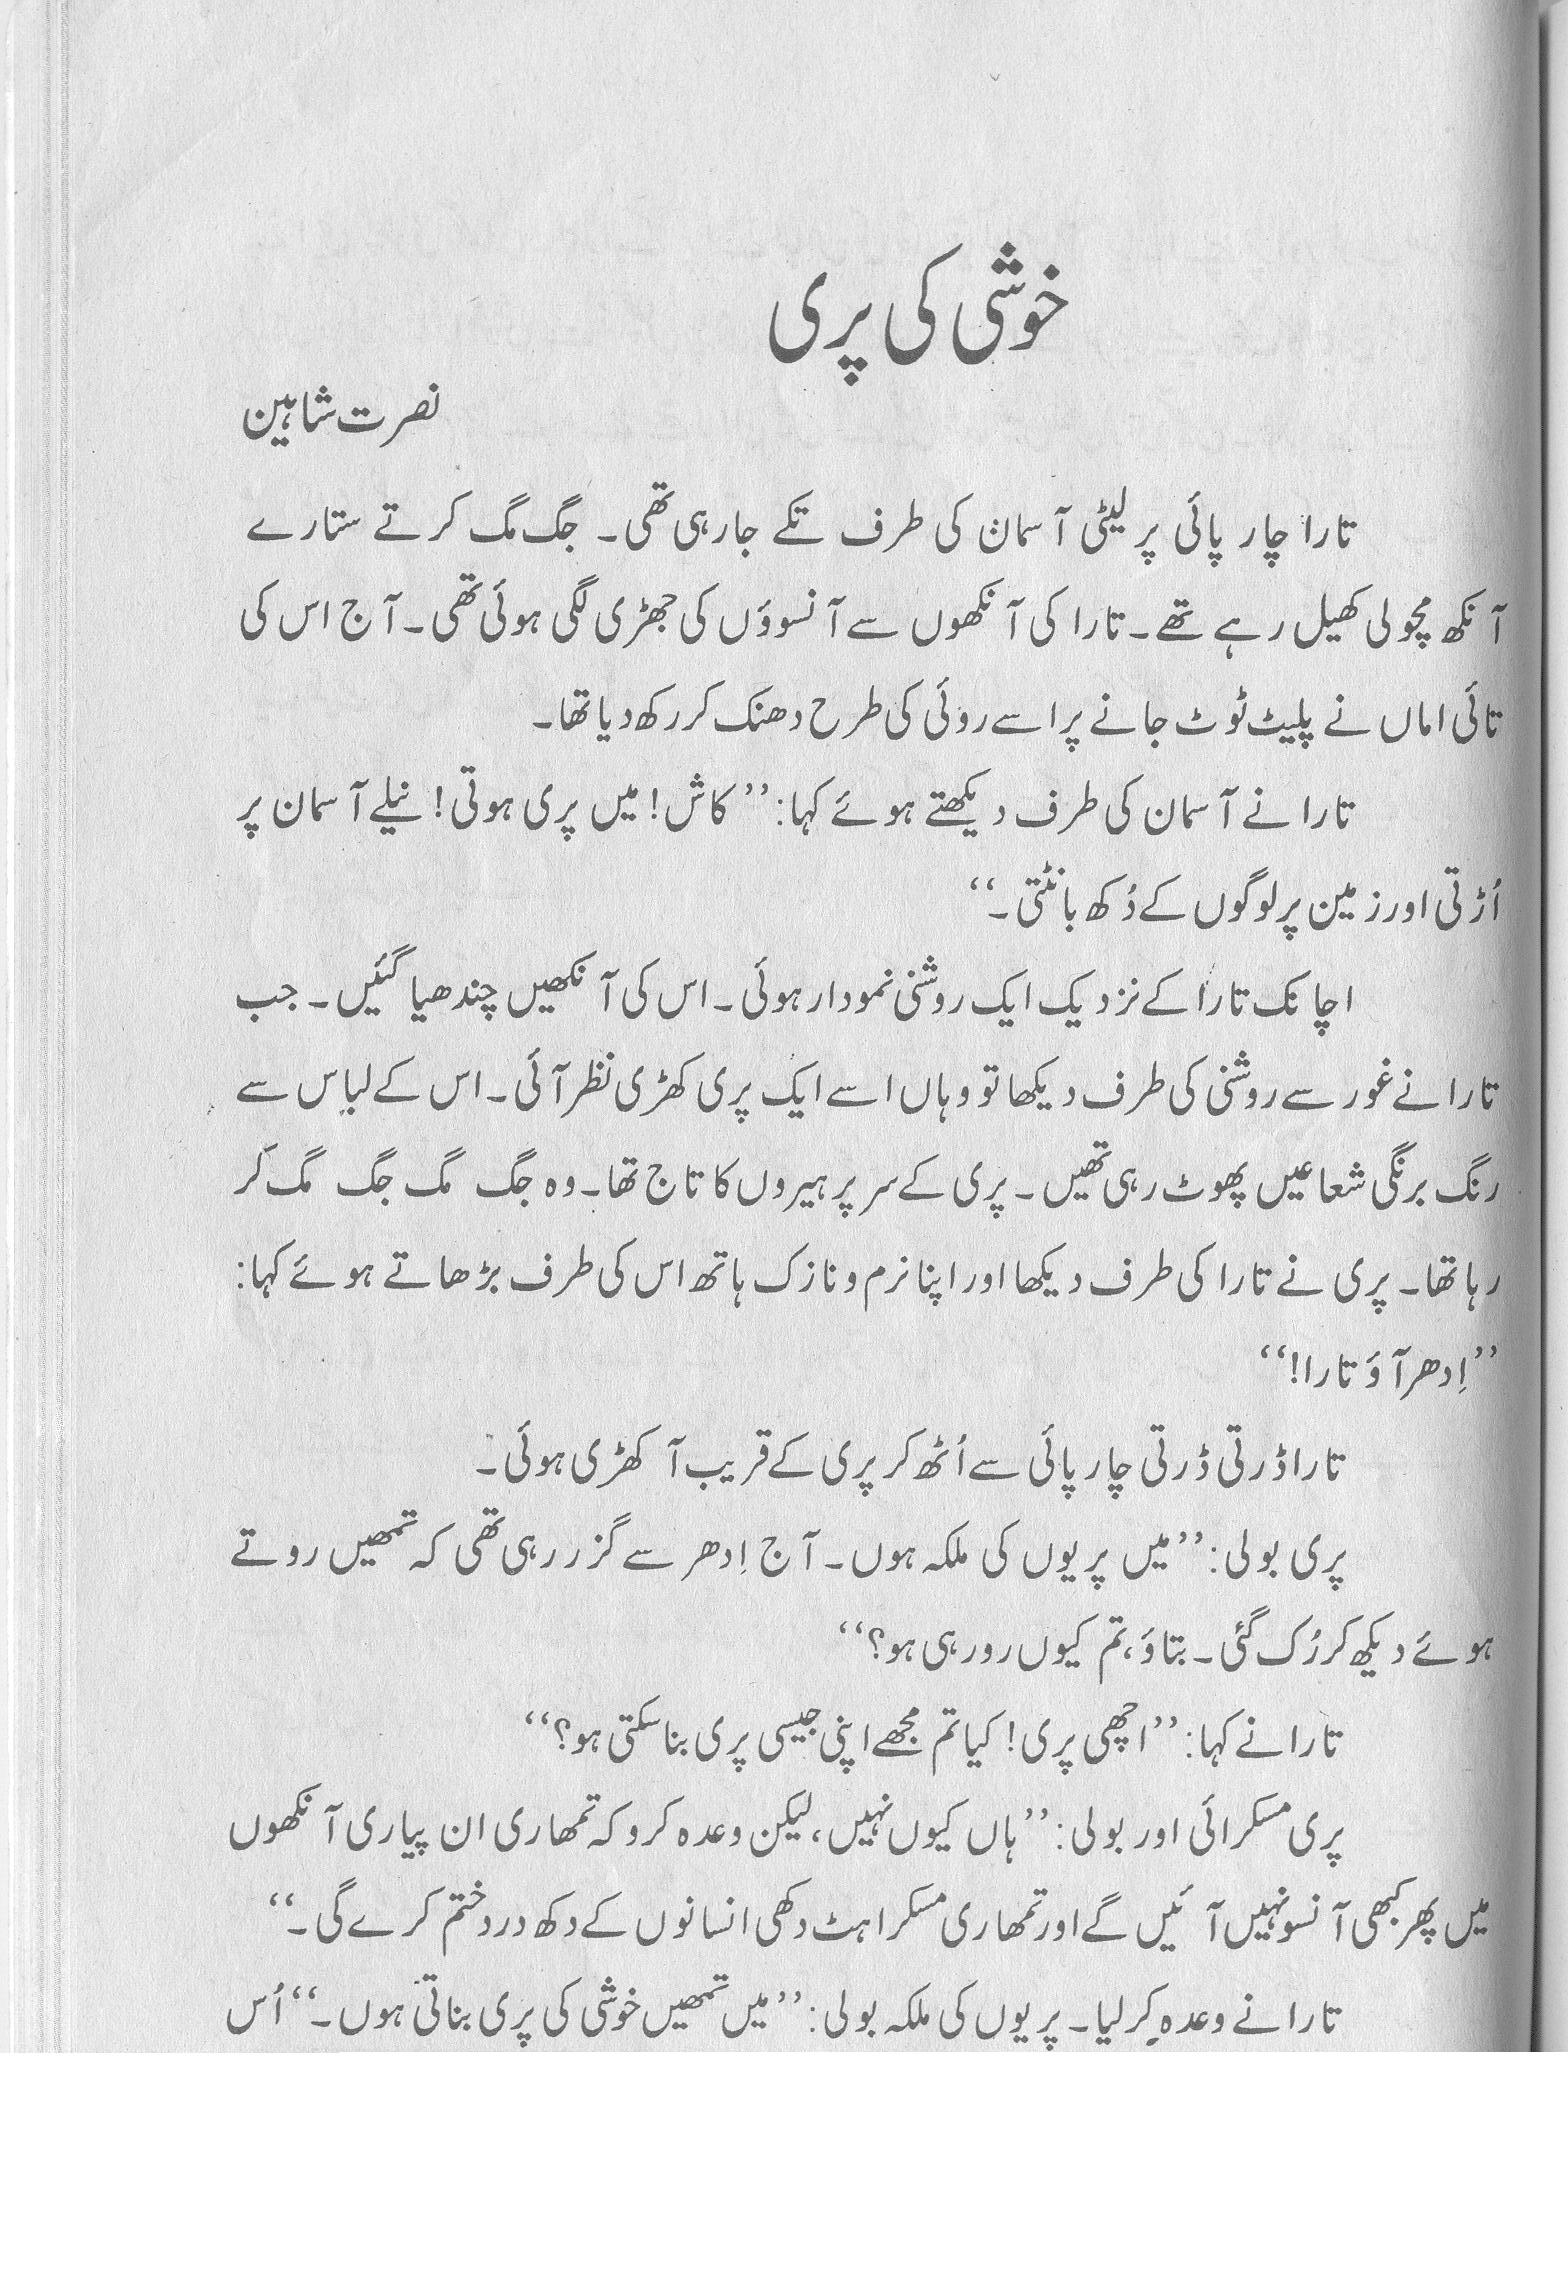 خوشی کی پری
نصرت شاہین
تارا چار پائی پر لیٹی آسمان کی طرف تکے جارہی تھی۔ جگ مگ کرتے ستارے
آنکھ مچولی کھیل رہے تھے۔ تارا کی آنکھوں سے آنسووَں کی جھڑی لگی ہوئی تھی۔ آج اس کی
تائی اماں نے پلیٹ ٹوٹ جانے پر اسے روئی کی طرح دھنک کر رکھ دیا تھا۔
تارا نے آسمان کی طرف دیکھتے ہوئے کہا: ’’کاش! میں پری ہوتی! نیلے آسمان پر
اُڑتی اور زمین پر لوگوں کے دُکھ بانٹتی۔‘‘
اچانک تارا کے نزدیک ایک روشنی نمودار ہوئی۔ اس کی آنکھیں چندھیا گئیں۔ جب
تارا نے غور سے روشنی کی طرف دیکھا تو وہاں اسے ایک پری کھڑی نظر آئی۔ اس کے لباس سے
رنگ برنگی شعاعیں پھوٹ رہی تھیں۔ پری کے سر پر ہیروں کا تاج تھا۔ وہ جگ مگ جگ مگ کر
رہا تھا۔ پری نے تارا کی طرف دیکھا اور اپنا نرم و نازک ہاتھ اس کی طرف بڑھاتے ہوئے کہا:
’’اِدھر آوَ تارا!‘‘
تارا ڈرتی ڈرتی چارپائی سے اُٹھ کر پری کے قریب آ کھڑی ہوئی۔
پری بولی: ’’میں پریوں کی ملکہ ہوں۔ آج اِدھر سے گزر رہی تھی کہ تمھیں روتے
ہوئے دیکھ کر رُک گئی۔ بتاوَ، تم کیوں رو رہی ہو؟‘‘
تارا نے کہا: ’’اچھی پری! کیا تم مجھے اپنی جیسی پری بنا سکتی ہو؟‘‘
پری مسکرائی اور بولی: ’’ہاں کیوں نہیں، لیکن وعدہ کرو کہ تمھاری ان پیاری آنکھوں
میں پھر کبھی آنسو نہیں آئیں گے اور تمھاری مسکراہٹ دکھی انسانوں کے دکھ درد ختم کرے گی۔‘‘
تارا نے وعدہ کر لیا۔ پریوں کی ملکہ بولی: ’’میں تمھیں خوشی کی پری بناتی ہوں۔‘‘ اُس